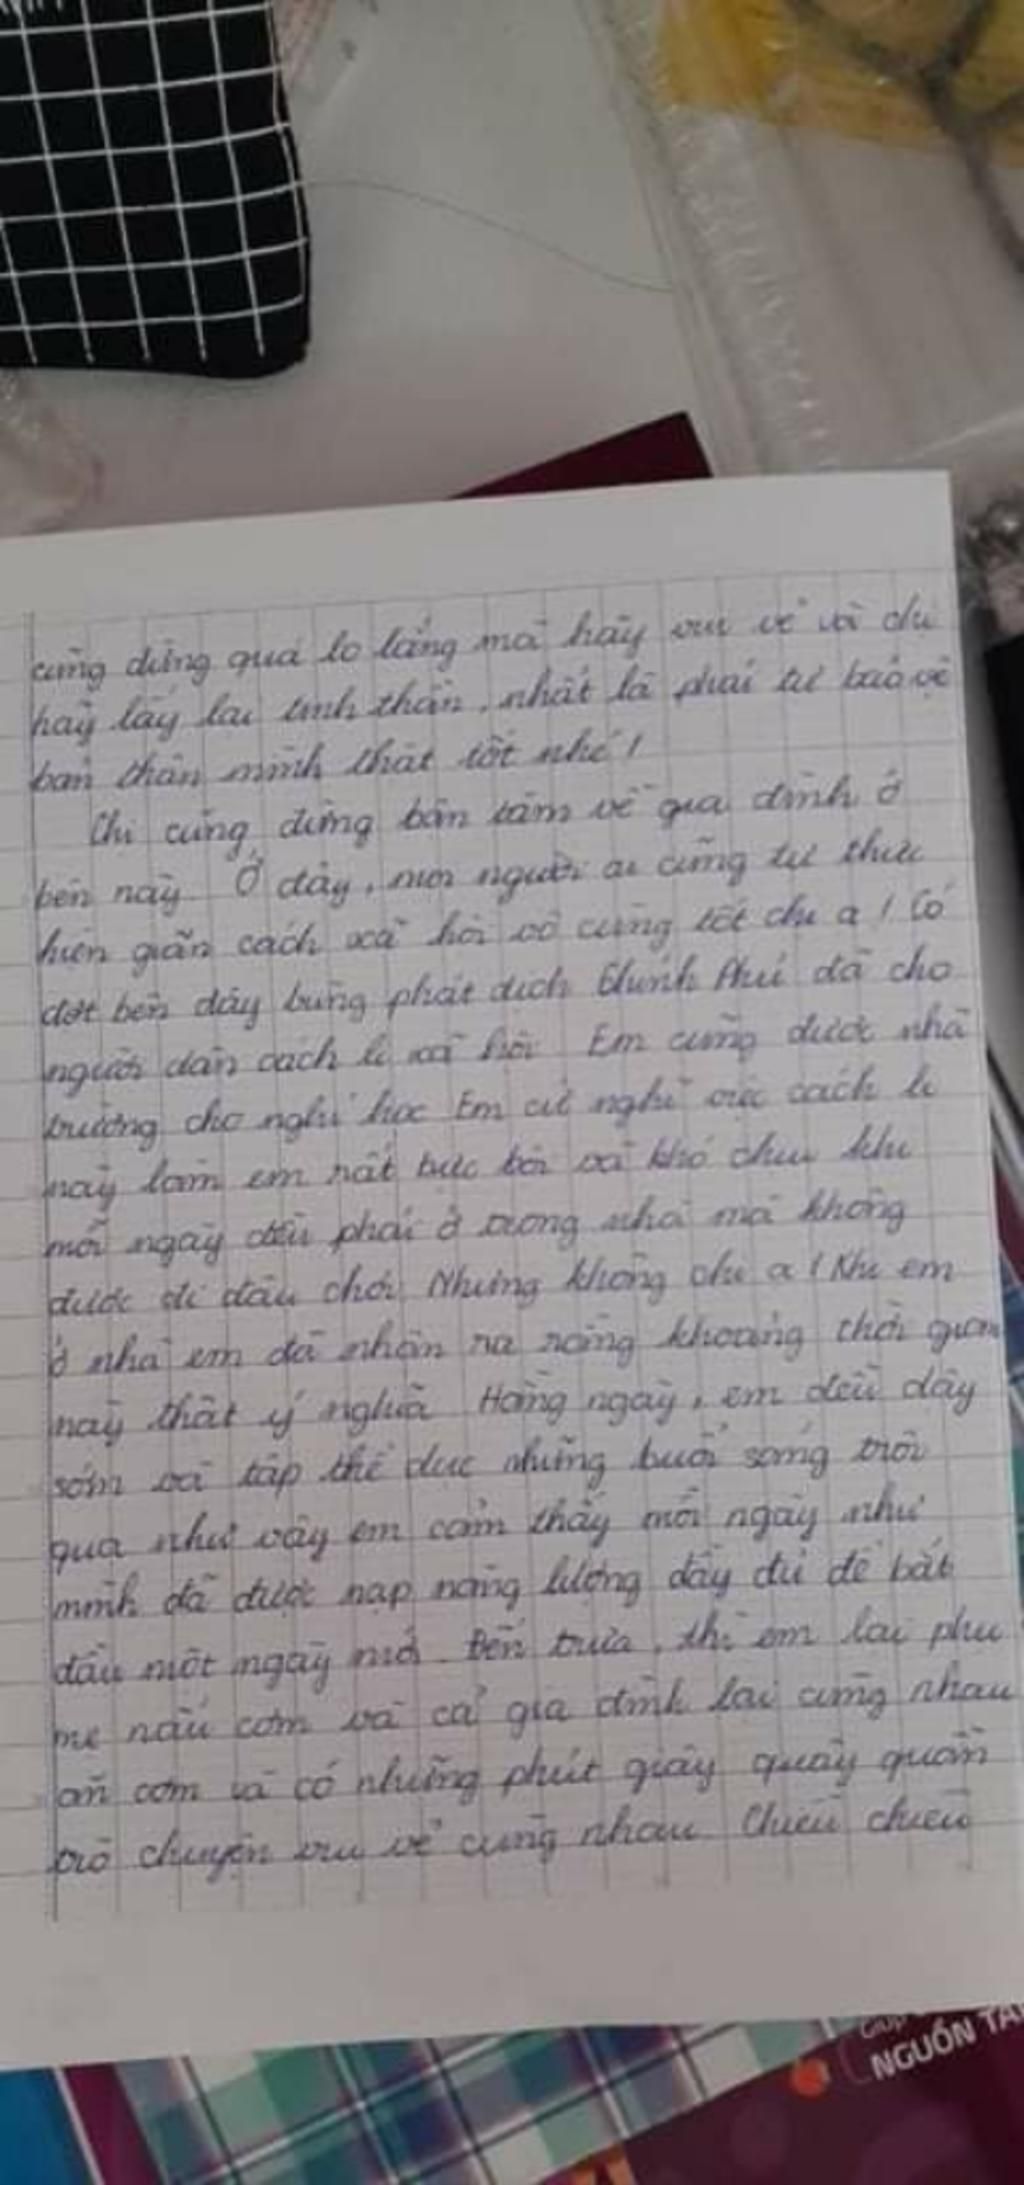 cũng đừng quá lo lắng mà hãy vui vẻ và chị
hãy lấy lại tinh thần, nhất là phải tự bảo vệ
bản thân mình thật tốt nhé!
Chị cũng đừng bận tâm về gia đình ở
bên này. Ở đây, mọi người ai cũng tự thực
hiện giãn cách xã hội vô cùng tốt chị ạ! Có
đợt bên đây bùng phát dịch Chính Phủ đã cho
người dân cách li xã hội. Em cũng được nhà
trường cho nghỉ học. Em cứ nghĩ việc cách li
này làm em rất bực bội và khó chịu khi
mỗi ngày đều phải ở trong nhà mà không
được đi đâu chơi. Nhưng không chị ạ! Khi em
ở nhà em đã nhận ra rằng khoảng thời gian
này thật ý nghĩa. Hằng ngày, em đều dậy
sớm và tập thể dục những buổi sáng trôi
qua như vậy em cảm thấy mỗi ngày như
mình đã được nạp năng lượng đầy đủ để bắt
đầu một ngày mới. Đến trưa, thì em lại phụ
mẹ nấu cơm và cả gia đình lại cùng nhau
ăn cơm và có những phút giây quây quần
trò chuyện vui vẻ cùng nhau. Chiều chiều
NGUỒN